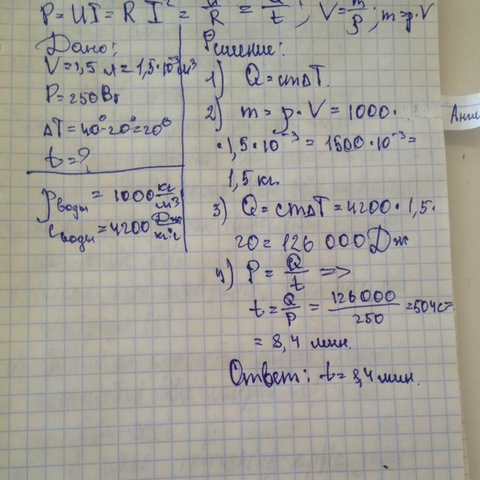 P = UI = R I² = U²/R = Q/t ; V = m/ρ ; m = ρ·V
Дано:
V = 1,5 л = 1,5·10⁻³ м³
P = 250 Вт
ΔT = 40° - 20° = 20°
t = ?
ρ воды = 1000 кг/м³
c воды = 4200 Дж/кг·°
Решение:
1) Q = cmΔT.
2) m = ρ·V = 1000·
·1,5·10⁻³ = 1500·10⁻³ =
1,5 кг.
3) Q = cmΔT = 4200·1,5·
20 = 126 000 Дж
4) P = Q/t =>
t = Q/P = 126000/250 = 504 с =
= 8,4 мин.
Ответ: t = 8,4 мин.